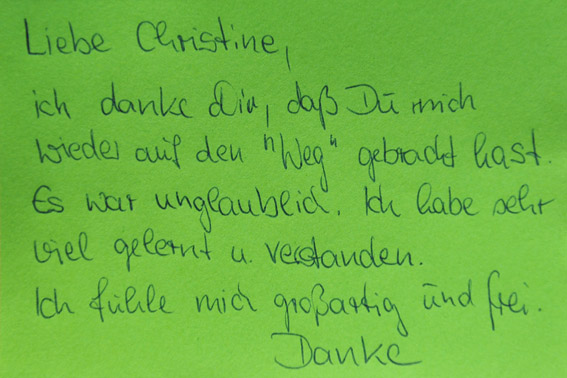 Liebe Christine,
ich danke Dir, daß Du mich
wieder auf den "Weg" gebracht hast.
Es war unglaublich. Ich habe sehr
viel gelernt u. verstanden.
Ich fühle mich großartig und frei.
Danke